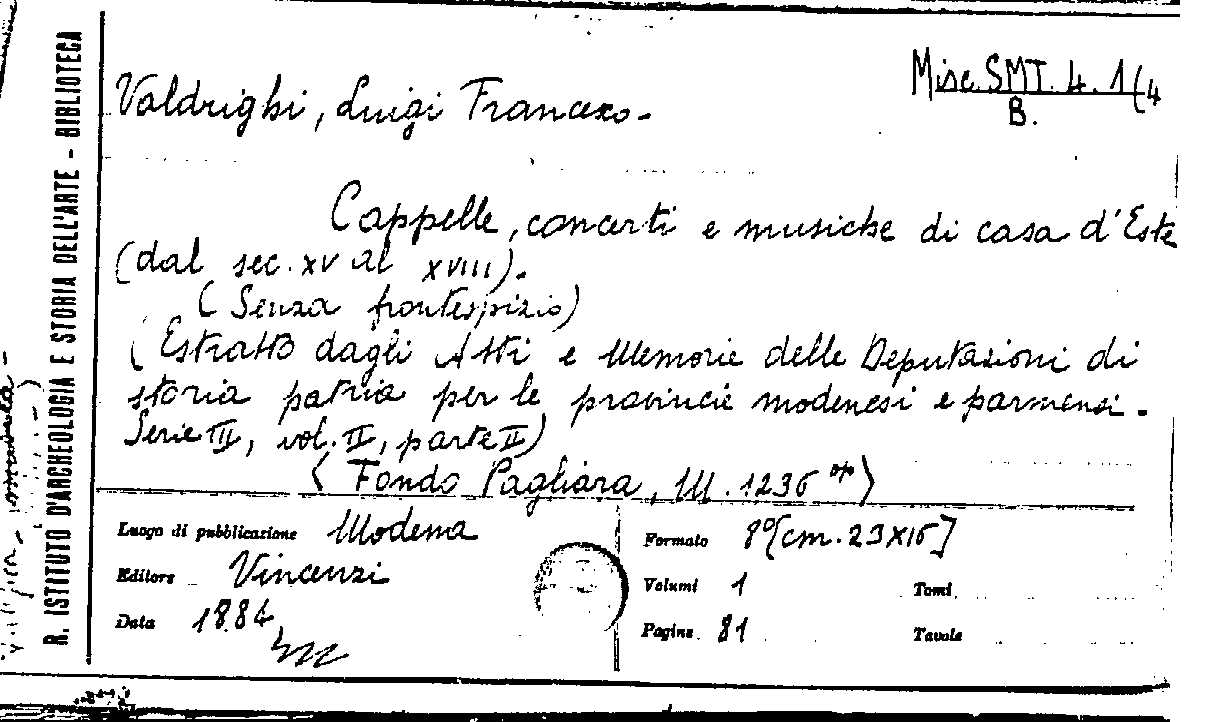 R. ISTITUTO D'ARCHEOLOGIA E STORIA DELL'ARTE - BIBLIOTECA
Misc. SMT. 4. 1(4
B.
Valdrighi, Luigi Francesco.
Cappelle, concerti e musiche di casa d'Este
(dal sec. XV al XVIII).
(Senza frontespizio)
(Estratto dagli Atti e Memorie delle Deputazioni di
storia patria per le provincie modenesi e parmensi.
Serie III, vol. II, parte II)
(Fondo Pagliara, M. 1236)
Luogo di pubblicazione Modena
Editore Vincenzi
Data 1884
Formato 8°[cm. 23X16]
Volumi 1
Tomi
Pagine 81
Tavole